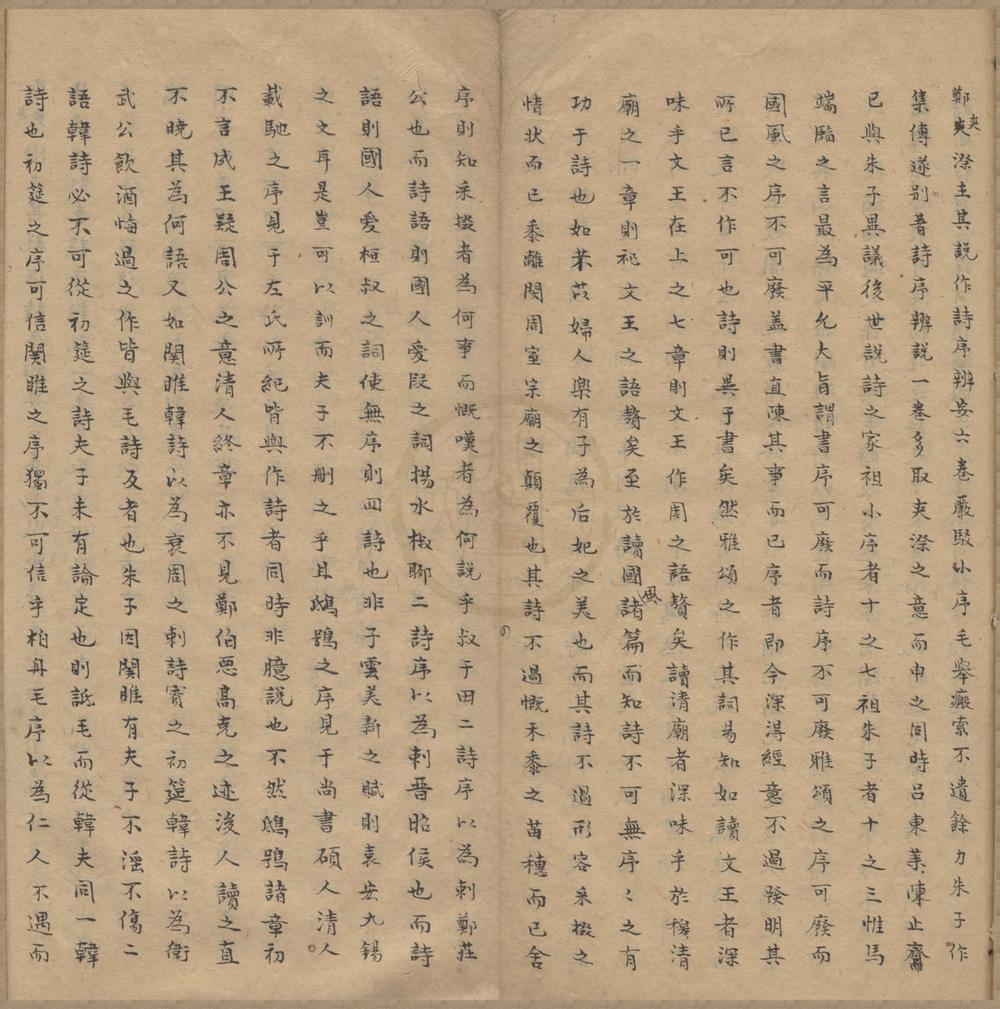 鄭夾漈主其說作詩序辨妄六卷嚴駁小序毛舉瘢索不遺餘力朱子作
集傳遂別著詩序辨說一卷多取夾漈之意而申之同時呂東萊陳止齋
已與朱子異議後世說詩之家祖小序者十之七祖朱子者十之三惟馬
端臨之言最為平允大旨謂書序可廢而詩序不可廢雅頌之序可廢而
國風之序不可廢盖書直陳其事而已序者即今深淂經意不過發明其
所已言不作可也詩則異于書矣然雅頌之作其詞易知如讀文王者深
味乎文王在上之七章則文王作周之語贅矣讀清廟者深味乎於穆清
廟之一章則祀文王之語贅矣至於讀國風諸篇而知詩不可無序〻之有
功于詩也如芣苡婦人樂有子為后妃之美也而其詩不過形容采掇之
情状而已黍離閔周室宗廟之顛覆也其詩不過慨禾黍之苗穗而已舍
序則知采掇者為何事而慨嘆者為何說乎叔于田二詩序以為刺鄭莊
公也而詩語則國人愛叚之詞揚水椒聊二詩序以為刺晋昭侯也而詩
語則國人愛桓叔之詞使無序則四詩也非子雲美新之賦則袁宏九錫
之文耳是豈可以訓而夫子不刪之乎且鴟鴞之序見于尚書碩人清人
載馳之序見于左氏所紀皆與作詩者同時非臆說也不然鴟鴞諸章初
不言成王疑周公之意清人終章亦不見鄭伯惡髙克之迹後人讀之直
不曉其為何語又如関雎韓詩以為衰周之刺詩賔之初筵韓詩以為衛
武公飲酒悔過之作皆與毛詩反者也朱子因関雎有夫子不淫不傷二
語韓詩必不可從初筵之詩夫子未有論定也則詆毛而從韓夫同一韓
詩也初筵之序可信関雎之序獨不可信乎柏舟毛序以為仁人不遇而